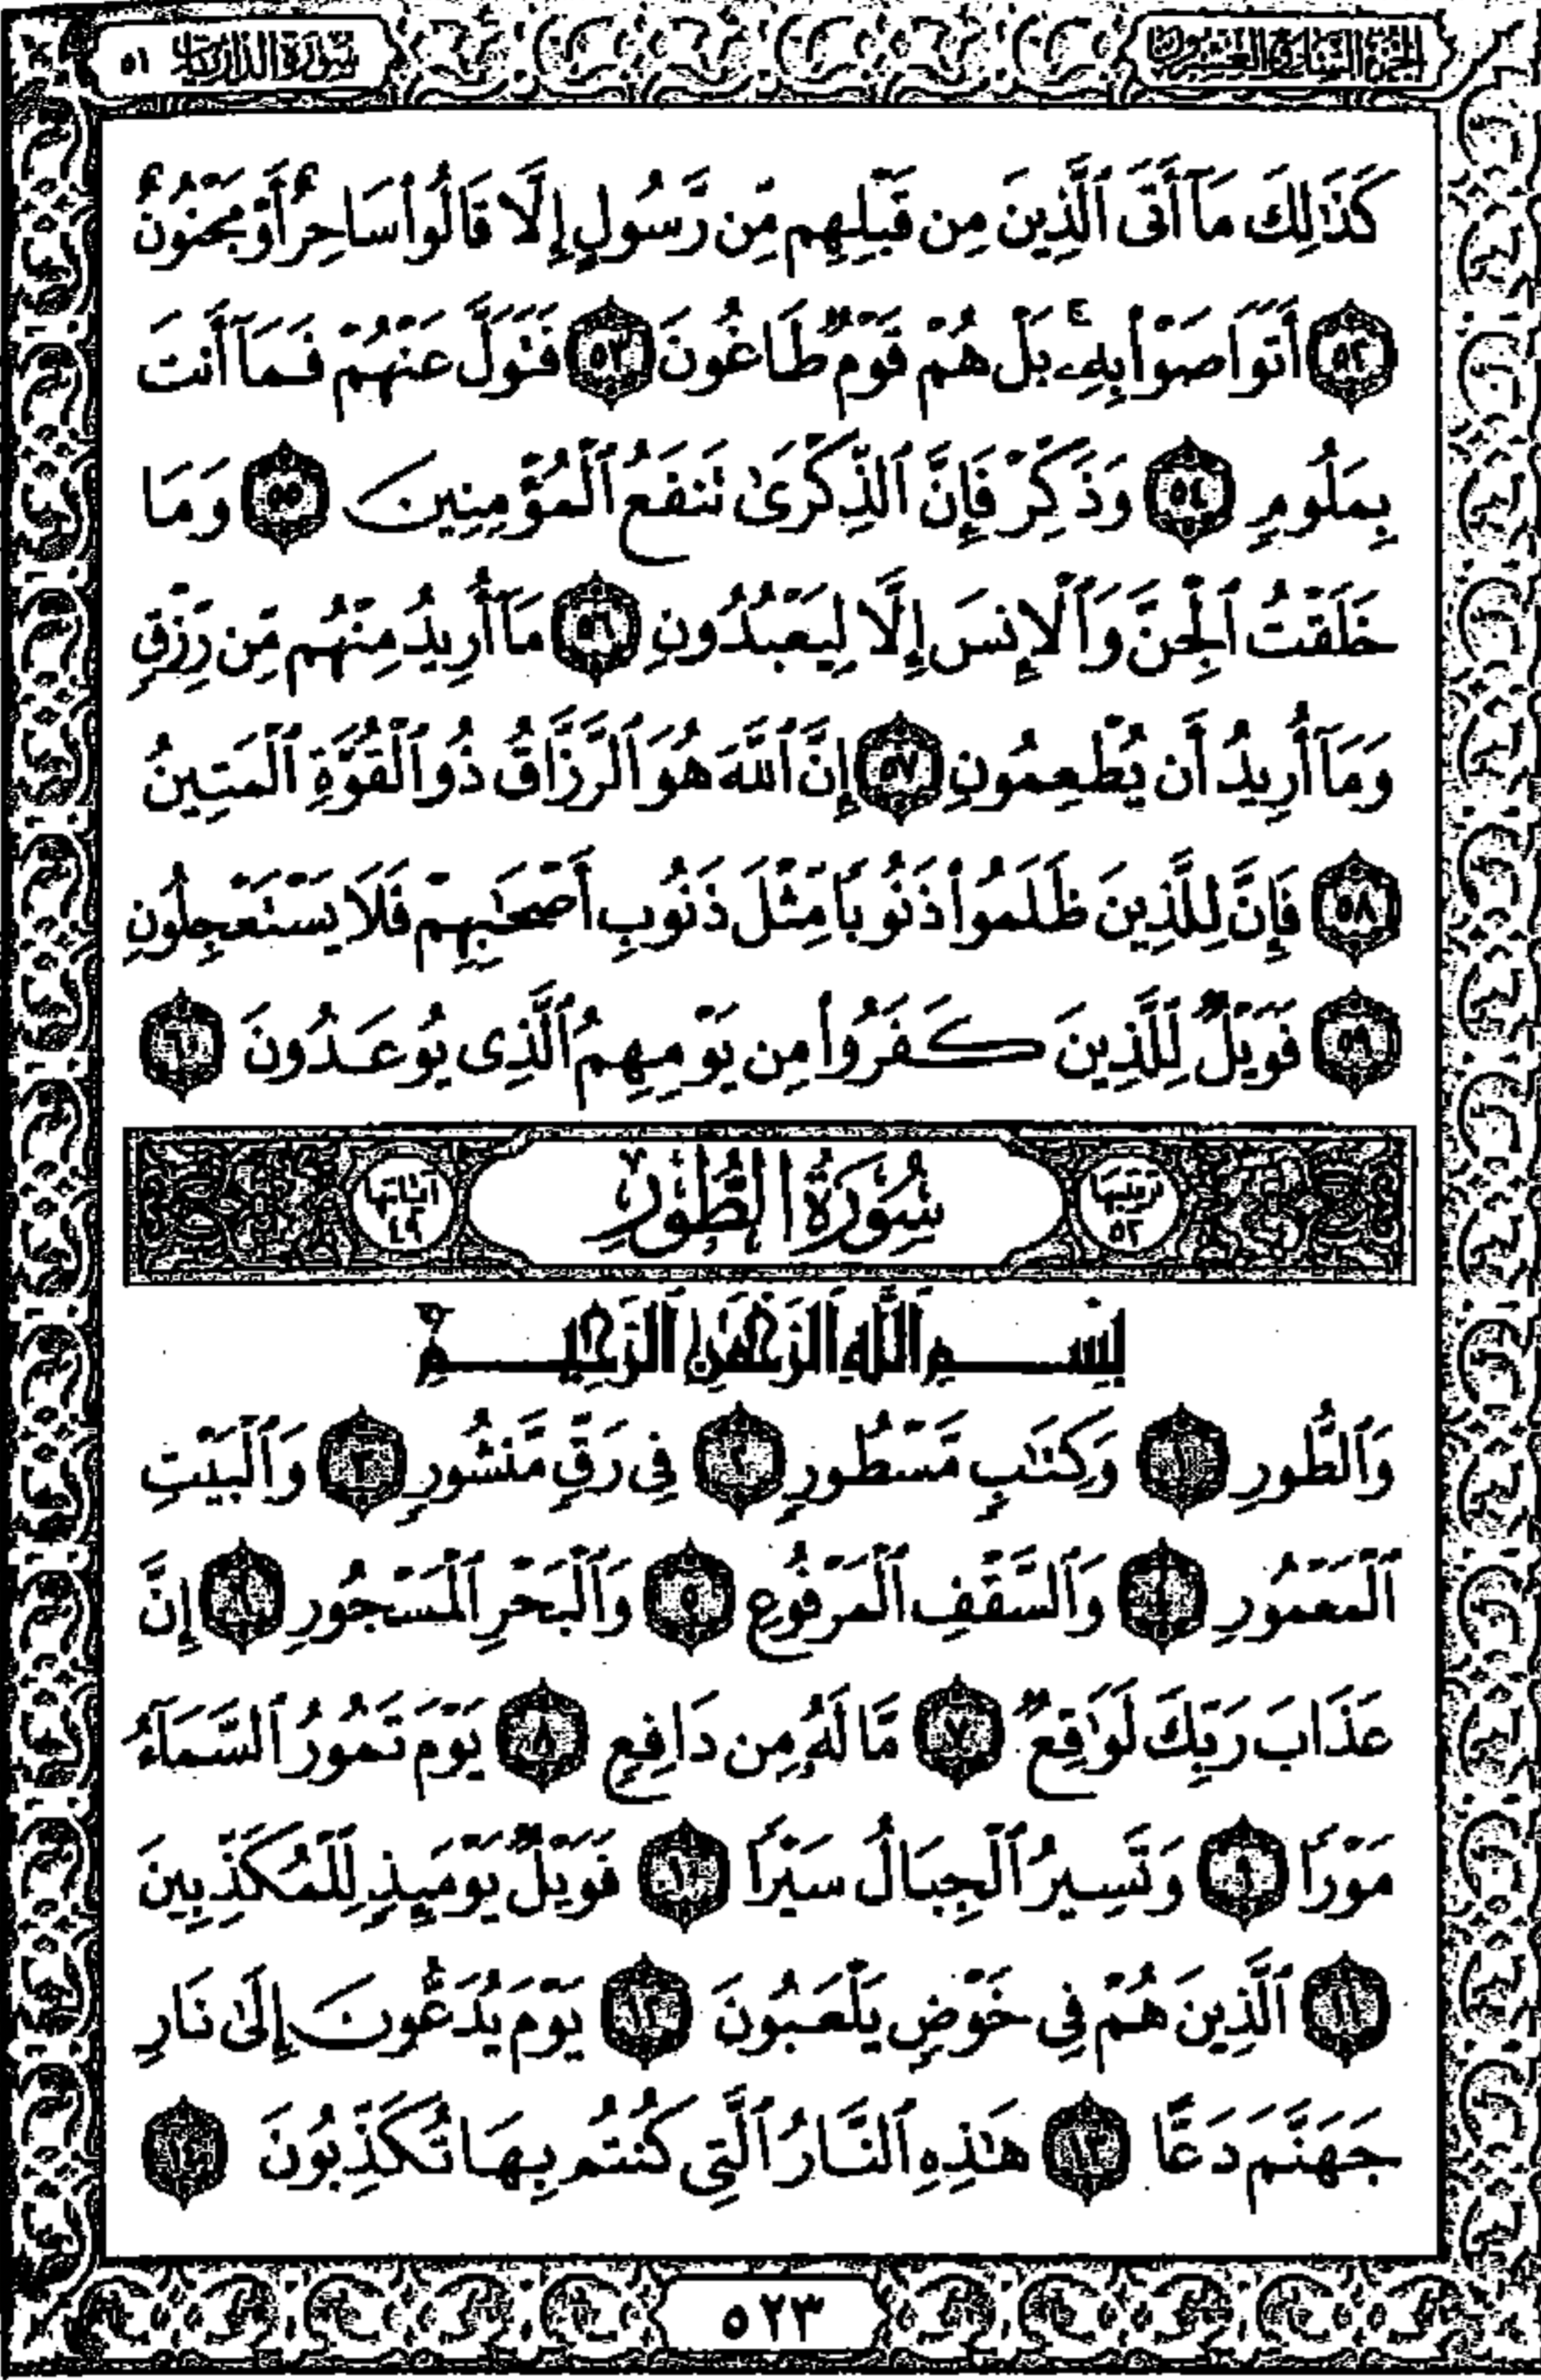 الجزء السابع والعشرون
سورة الذاريات ٥١
كَذَٰلِكَ مَآ أَتَى ٱلَّذِينَ مِن قَبْلِهِم مِّن رَّسُولٍ إِلَّا قَالُوا۟ سَاحِرٌ أَوْ مَجْنُونٌ
٥٢ أَتَوَاصَوْا۟ بِهِۦ ۚ بَلْ هُمْ قَوْمٌ طَاغُونَ ٥٣ فَتَوَلَّ عَنْهُمْ فَمَآ أَنتَ
بِمَلُومٍ ٥٤ وَذَكِّرْ فَإِنَّ ٱلذِّكْرَىٰ تَنفَعُ ٱلْمُؤْمِنِينَ ٥٥ وَمَا
خَلَقْتُ ٱلْجِنَّ وَٱلْإِنسَ إِلَّا لِيَعْبُدُونِ ٥٦ مَآ أُرِيدُ مِنْهُم مِّن رِّزْقٍ
وَمَآ أُرِيدُ أَن يُطْعِمُونِ ٥٧ إِنَّ ٱللَّهَ هُوَ ٱلرَّزَّاقُ ذُو ٱلْقُوَّةِ ٱلْمَتِينُ
٥٨ فَإِنَّ لِلَّذِينَ ظَلَمُوا۟ ذَنُوبًا مِّثْلَ ذَنُوبِ أَصْحَٰبِهِمْ فَلَا يَسْتَعْجِلُونِ
٥٩ فَوَيْلٌ لِّلَّذِينَ كَفَرُوا۟ مِن يَوْمِهِمُ ٱلَّذِى يُوعَدُونَ ٦٠
ترتيبها ٥٢ سُورَةُ الطُّورِ آياتها ٤٩
بِسْمِ ٱللَّهِ ٱلرَّحْمَٰنِ ٱلرَّحِيمِ
وَٱلطُّورِ ١ وَكِتَٰبٍ مَّسْطُورٍ ٢ فِى رَقٍّ مَّنشُورٍ ٣ وَٱلْبَيْتِ
ٱلْمَعْمُورِ ٤ وَٱلسَّقْفِ ٱلْمَرْفُوعِ ٥ وَٱلْبَحْرِ ٱلْمَسْجُورِ ٦ إِنَّ
عَذَابَ رَبِّكَ لَوَٰقِعٌ ٧ مَّا لَهُۥ مِن دَافِعٍ ٨ يَوْمَ تَمُورُ ٱلسَّمَآءُ
مَوْرًا ٩ وَتَسِيرُ ٱلْجِبَالُ سَيْرًا ١٠ فَوَيْلٌ يَوْمَئِذٍ لِّلْمُكَذِّبِينَ
١١ ٱلَّذِينَ هُمْ فِى خَوْضٍ يَلْعَبُونَ ١٢ يَوْمَ يُدَعُّونَ إِلَىٰ نَارِ
جَهَنَّمَ دَعًّا ١٣ هَٰذِهِ ٱلنَّارُ ٱلَّتِى كُنتُم بِهَا تُكَذِّبُونَ ١٤
٥٢٣